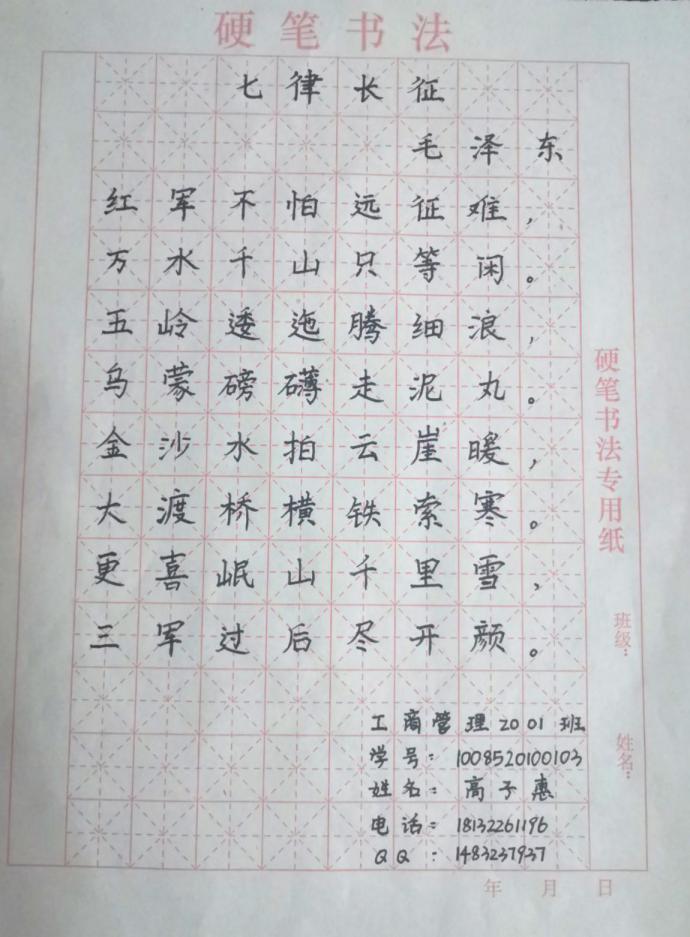 硬笔书法
七律长征
毛泽东
红军不怕远征难，
万水千山只等闲。
五岭逶迤腾细浪，
乌蒙磅礴走泥丸。
金沙水拍云崖暖，
大渡桥横铁索寒。
更喜岷山千里雪，
三军过后尽开颜。
工商管理2001班
学号：1008520100103
姓名：高子惠
电话：18132261196
QQ：1483237937
硬笔书法专用纸
班级：
姓名：
年 月 日